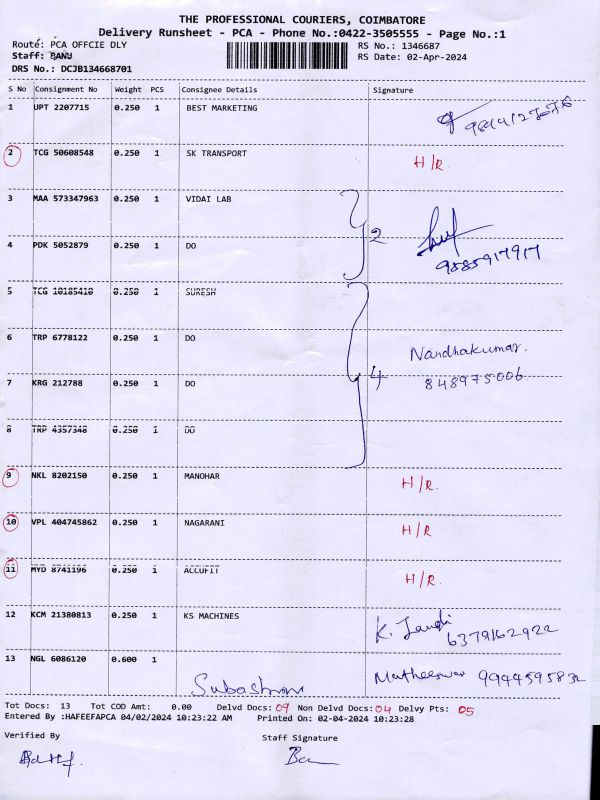 THE PROFESSIONAL COURIERS, COIMBATORE
Delivery Runsheet - PCA - Phone No.:0422-3505555 - Page No.:1
Route: PCA OFFCIE DLY
RS No.: 1346687
Staff: BANU
RS Date: 02-Apr-2024
DRS No.: DCJB134668701
S No Consignment No Weight PCS Consignee Details Signature
1 UPT 2207715 0.250 1 BEST MARKETING
2 TCG 50608548 0.250 1 SK TRANSPORT H/R.
3 MAA 573347963 0.250 1 VIDAI LAB
2
4 PDK 5052879 0.250 1 DO 9585917917
5 TCG 10185410 0.250 1 SURESH
6 TRP 6778122 0.250 1 DO Nandhakumar.
7 KRG 212788 0.250 1 DO 4 848975006
8 TRP 4357348 0.250 1 DO
9 NKL 8202150 0.250 1 MANOHAR H/R.
10 VPL 404745862 0.250 1 NAGARANI H/R
11 MYD 8741196 0.250 1 ACCUFIT H/R.
12 KCM 21380813 0.250 1 KS MACHINES K. 6379162922
13 NGL 6086120 0.600 1 9944595832
Tot Docs: 13 Tot COD Amt: 0.00 Delvd Docs: 09 Non Delvd Docs: 04 Delvy Pts: 05
Entered By :HAFEEFAPCA 04/02/2024 10:23:22 AM Printed On: 02-04-2024 10:23:28
Verified By Staff Signature